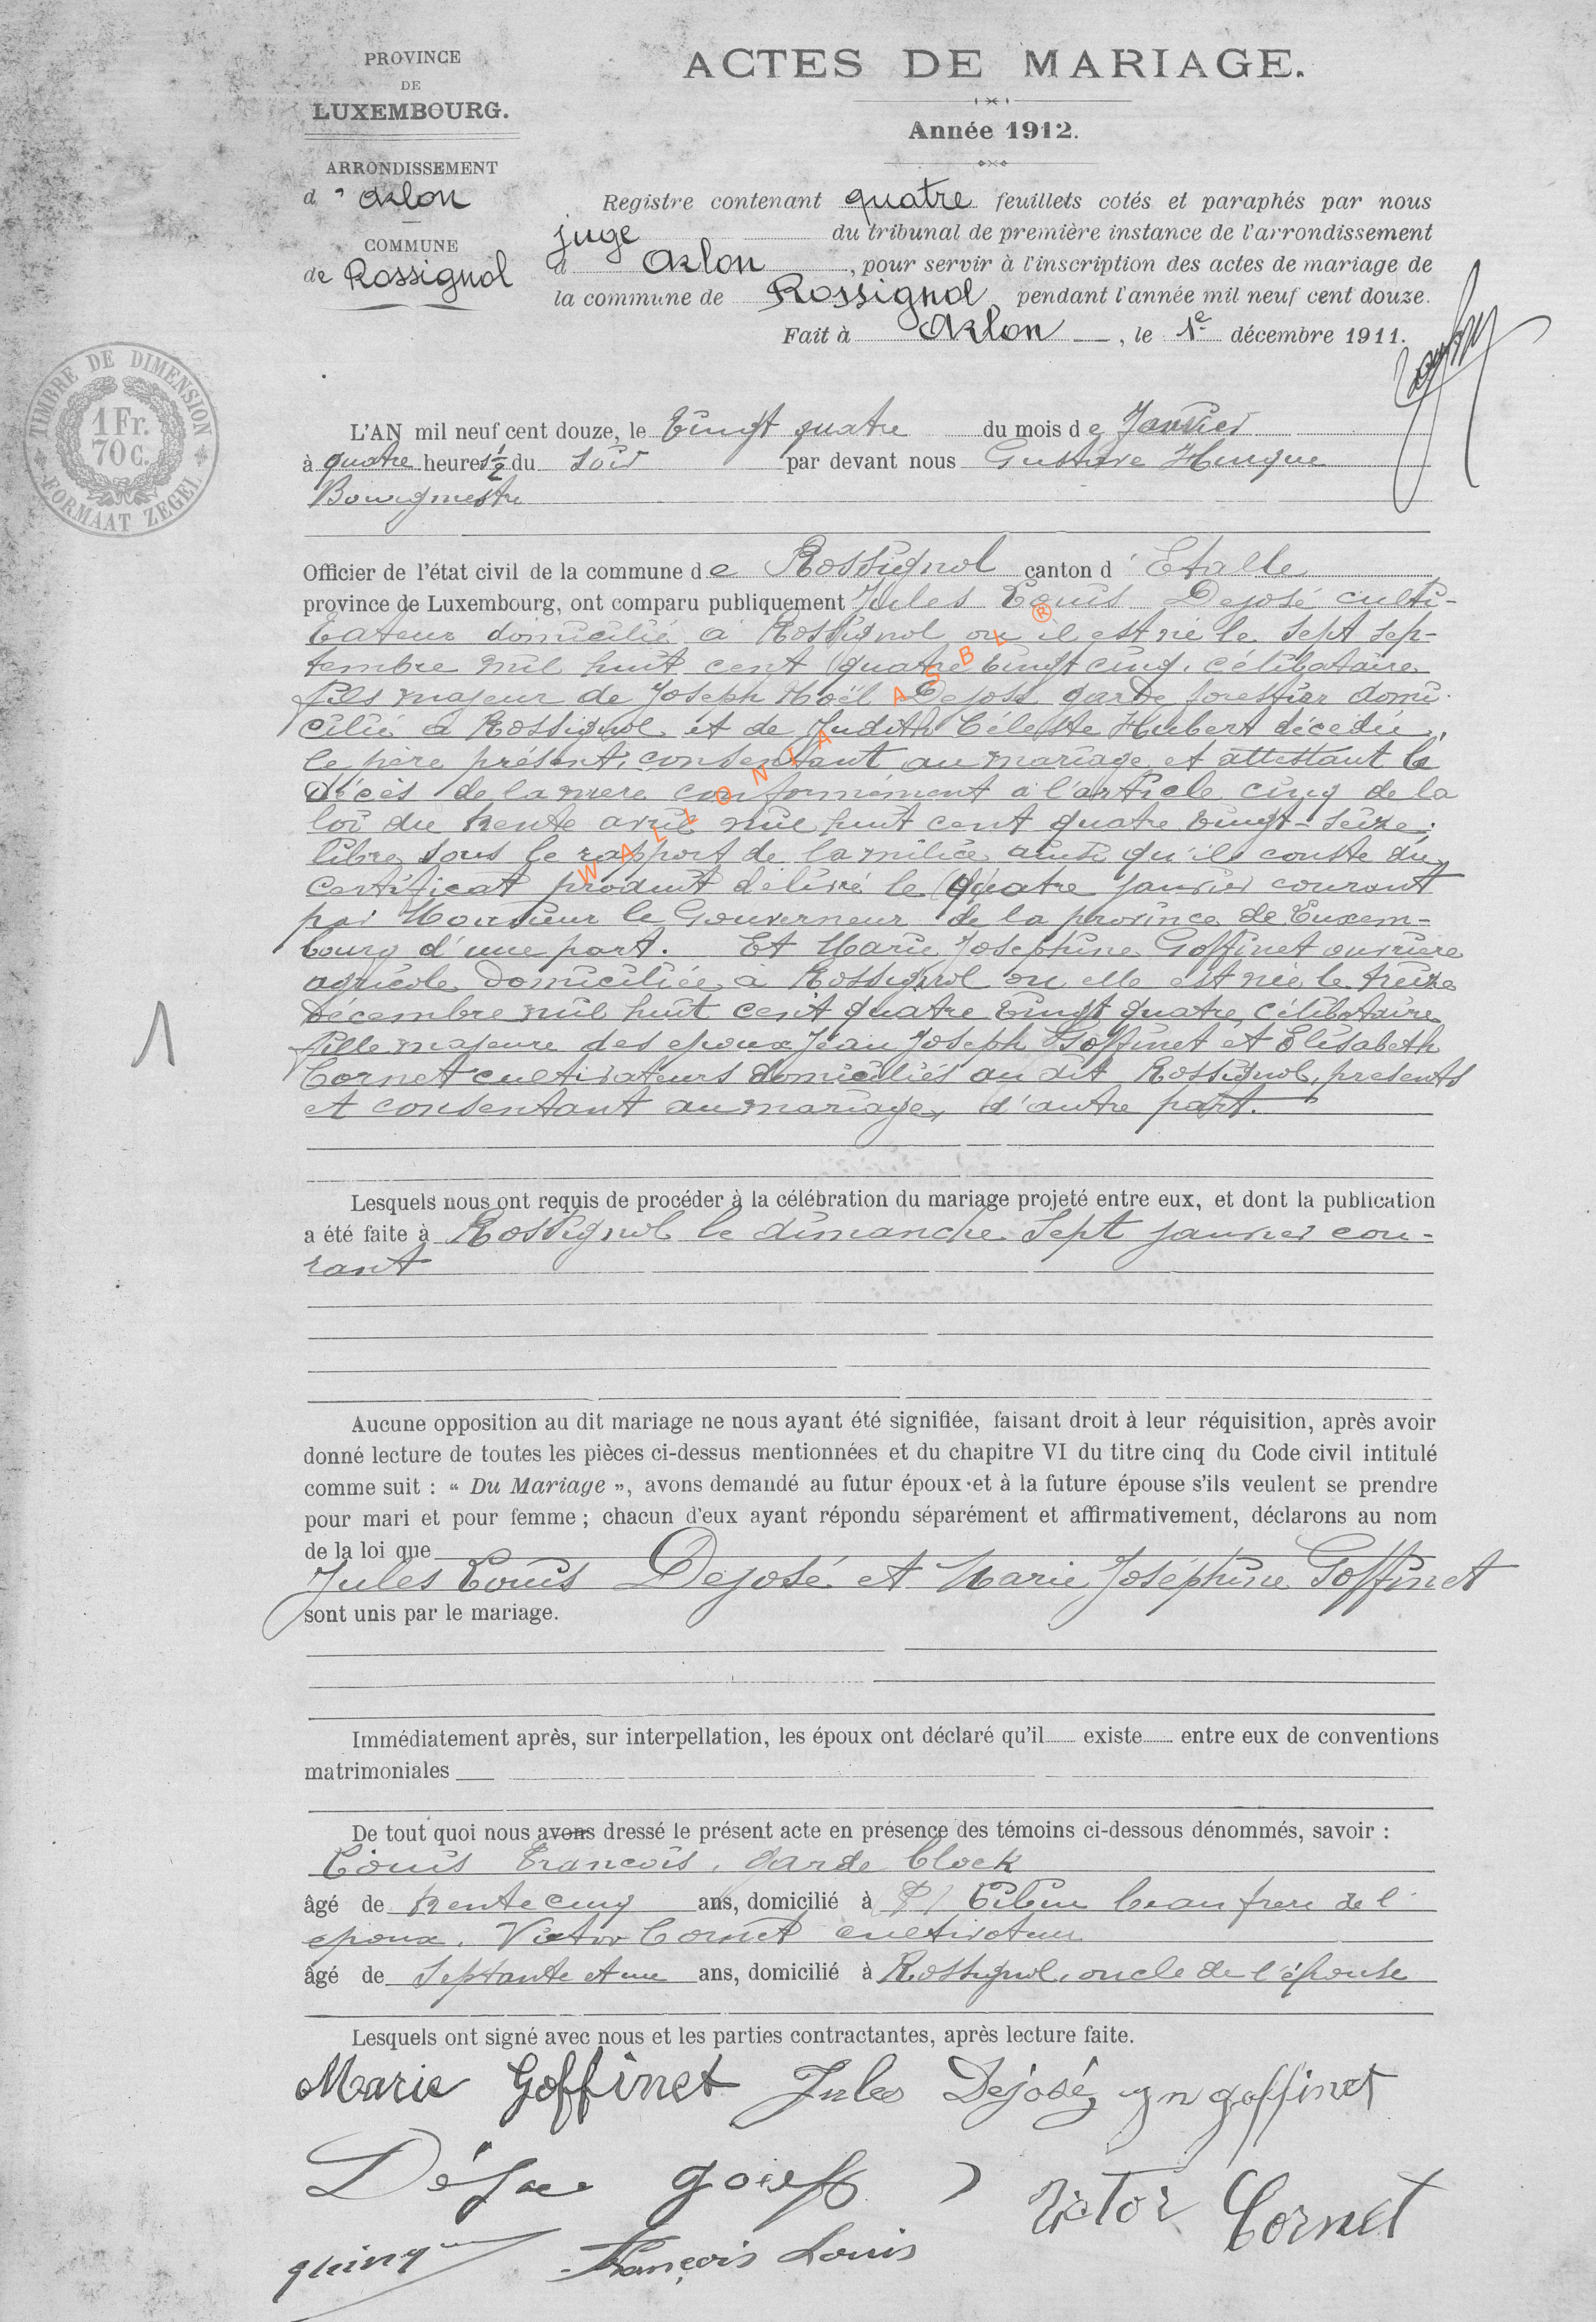 PROVINCE
DE
LUXEMBOURG.
ARRONDISSEMENT
d' Arlon
COMMUNE
de Rossignol
ACTES DE MARIAGE.
Année 1912.
Registre contenant quatre feuillets cotés et paraphés par nous
juge du tribunal de première instance de l'arrondissement
d Arlon, pour servir à l'inscription des actes de mariage de
la commune de Rossignol pendant l'année mil neuf cent douze.
Fait à Arlon, le 1e décembre 1911.
TIMBRE DE DIMENSION
1 Fr.
70 c.
FORMAAT ZEGEL
L'AN mil neuf cent douze, le vingt quatre du mois de Janvier
à quatre heures 1/2 du soir par devant nous Gustave Hurgue
Bourgmestre
Officier de l'état civil de la commune de Rossignol canton d'Etalle
province de Luxembourg, ont comparu publiquement Jules Louis Dejosé culti-
vateur domicilié à Rossignol ou il est né le sept sep-
tembre mil huit cent quatre vingt cinq, célibataire
fils majeur de Joseph Noël Dejosé garde forestier domi
cilié à Rossignol et de Judith Céleste Hubert décédée,
le père présent, consentant au mariage et attestant le
décès de la mère conformément à l'article cinq de la
loi du trente avril mil huit cent quatre vingt-seize;
libre sous le rapport de la milice ainsi qu'il conste du
certificat produit délivré le quatre janvier courant
par Monsieur le Gouverneur de la province de Luxem-
bourg d'une part. Et Marie Joséphine Goffinet ouvrière
agricole domiciliée à Rossignol ou elle est née le treize
Décembre mil huit cent quatre vingt quatre, célibataire
fille majeure des époux Jean Joseph Goffinet et Elisabeth
Cornet cultivateurs domiciliés au dit Rossignol, présents
et consentant au mariage, d'autre part.
WALLONIA ASBL ®
1
Lesquels nous ont requis de procéder à la célébration du mariage projeté entre eux, et dont la publication
a été faite à Rossignol le dimanche sept janvier cou-
rant
Aucune opposition au dit mariage ne nous ayant été signifiée, faisant droit à leur réquisition, après avoir
donné lecture de toutes les pièces ci-dessus mentionnées et du chapitre VI du titre cinq du Code civil intitulé
comme suit : « Du Mariage », avons demandé au futur époux et à la future épouse s'ils veulent se prendre
pour mari et pour femme ; chacun d'eux ayant répondu séparément et affirmativement, déclarons au nom
de la loi que
Jules Louis Dejosé et Marie Joséphine Goffinet
sont unis par le mariage.
Immédiatement après, sur interpellation, les époux ont déclaré qu'il existe entre eux de conventions
matrimoniales
De tout quoi nous avons dressé le présent acte en présence des témoins ci-dessous dénommés, savoir :
Louis François, garde block
âgé de trente cinq ans, domicilié à beau frere de l'
epoux. Victor Cornet cultivateur
âgé de septante et un ans, domicilié à Rossignol, oncle de l'épouse
Lesquels ont signé avec nous et les parties contractantes, après lecture faite.
Marie Goffinet Jules Dejosé goffinet
Victor Cornet
François Louis